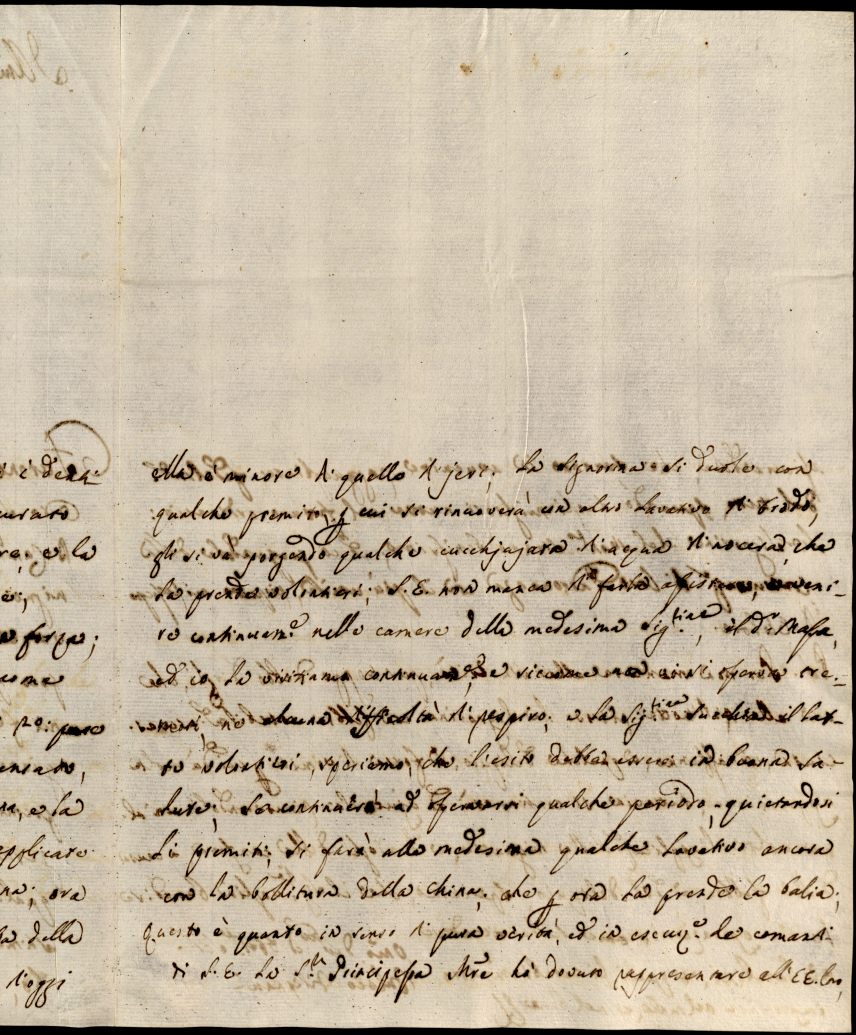 i è deni-
curato
re, e la
e;
a forza;
come
po: pure
ensato,
na, e la
applicare
na; ora
a della
d'oggi
ella è minore di quello di jeri; La Signorina si duole con
qualche premito, p cui si rinnoverà con altro Lavativo di brodo,
gli si và porgendo qualche cucchjajara d'acqua di nocera, che
La prende volontieri; S. E. non manca di farla assistere, e veni-
re continuam.e nelle camere della medesima Sig.tina, il d.r Massa,
ed io La visitiamo continuam.e, e siccome non vi si osserva tre-
mori, nè alcuna difficoltà di respiro, e la Sig.tina succhia il lat-
te volontieri, speriamo, che l'esito debba essere in buona sa-
lute; Se continuerà ad osservarsi qualche periodo, quietandosi
Li premiti, si farà alla medesima qualche Lavativo ancora
con La bollitura della china, che p ora La prende la balia;
Questo è quanto in senso di pura verità, ed in esecuz.e de comandi
di S. E. La S.ra Principessa Mre hò dovuto rappresentare all'EE. Loro,